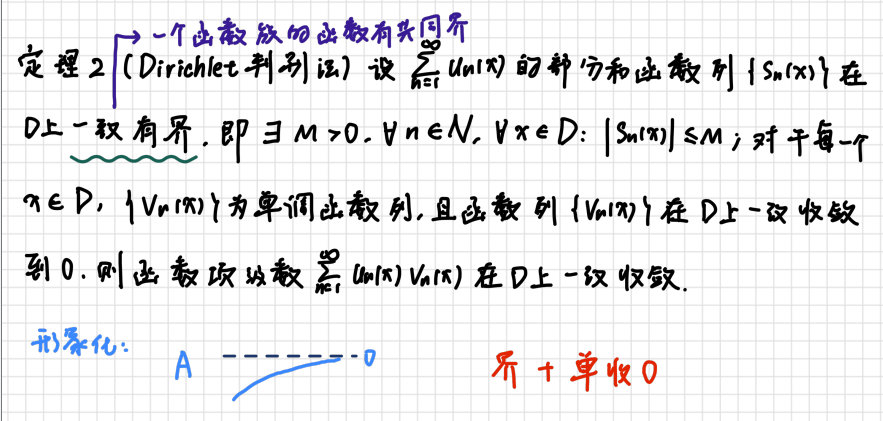 一个函数族的函数有共同界
定理2 (Dirichlet 判别法) 设 $\sum_{n=1}^{\infty} u_n(x)$ 的部分和函数列 {S_n(x)} 在
D上一致有界, 即 ∃ M > 0. ∀ n ∈ N, ∀ x ∈ D: |S_n(x)| ≤ M ; 对于每一个
x ∈ D, {V_n(x)} 为单调函数列, 且函数列 {V_n(x)} 在 D上一致收敛
到 0. 则函数项级数 $\sum_{n=1}^{\infty} u_n(x) V_n(x)$ 在 D上一致收敛.
形象化: A 0 界 + 单收 0